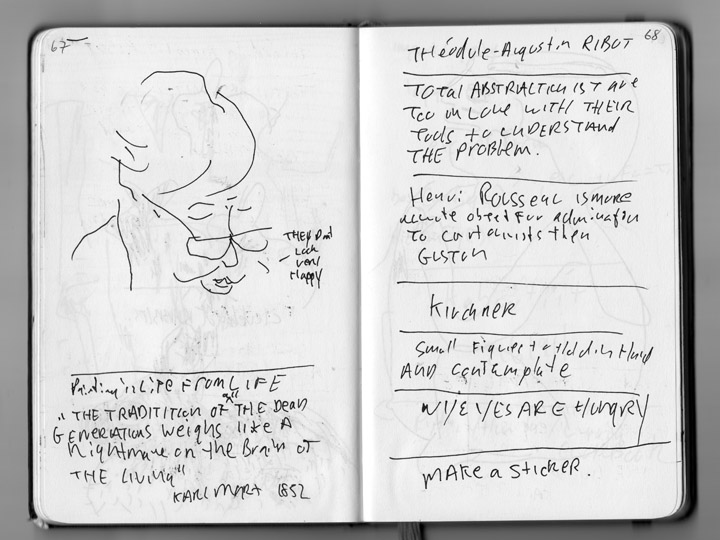 67
THEY Dont
Look
very
Happy
Painting is Life FROM LIFE
"THE TRADITITION OF THE Dean
GENERATIONS Weighs like A
Nightmare on the Brain of
THE LIVING"
KARL MARX 1852
68
THéodule-Augustin RIBOT
TOTAL ABSTRACTIONIST are
Too in Love WITH THEIR
Tools to UNDERSTAND
THE PROBLEM.
Henri ROUSSEAU is more
accurate object For admiration
To cartoonists then
GUSTON
Kirchner
Small Figures to Hold in Hand
AND contemplate
MY EYES ARE Hungry
MAKE a Sticker.